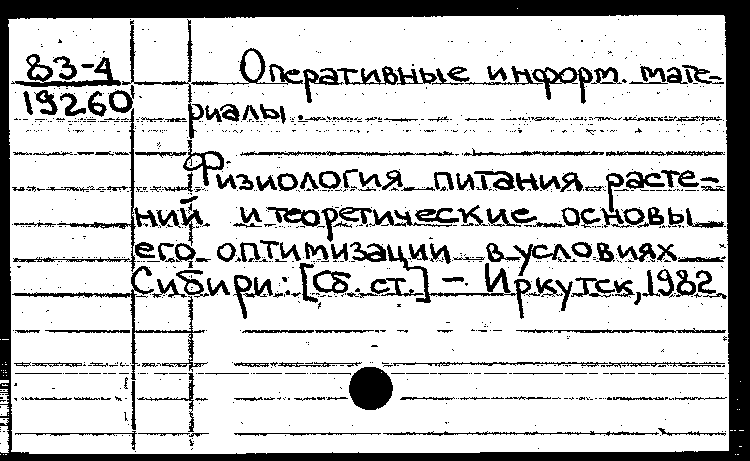 83-4
19260
Оперативные информ. мате-
риалы.
Физиология питания расте-
ний и теоретические основы
его оптимизации в условиях
Сибири: [Сб. ст.] - Иркутск, 1982